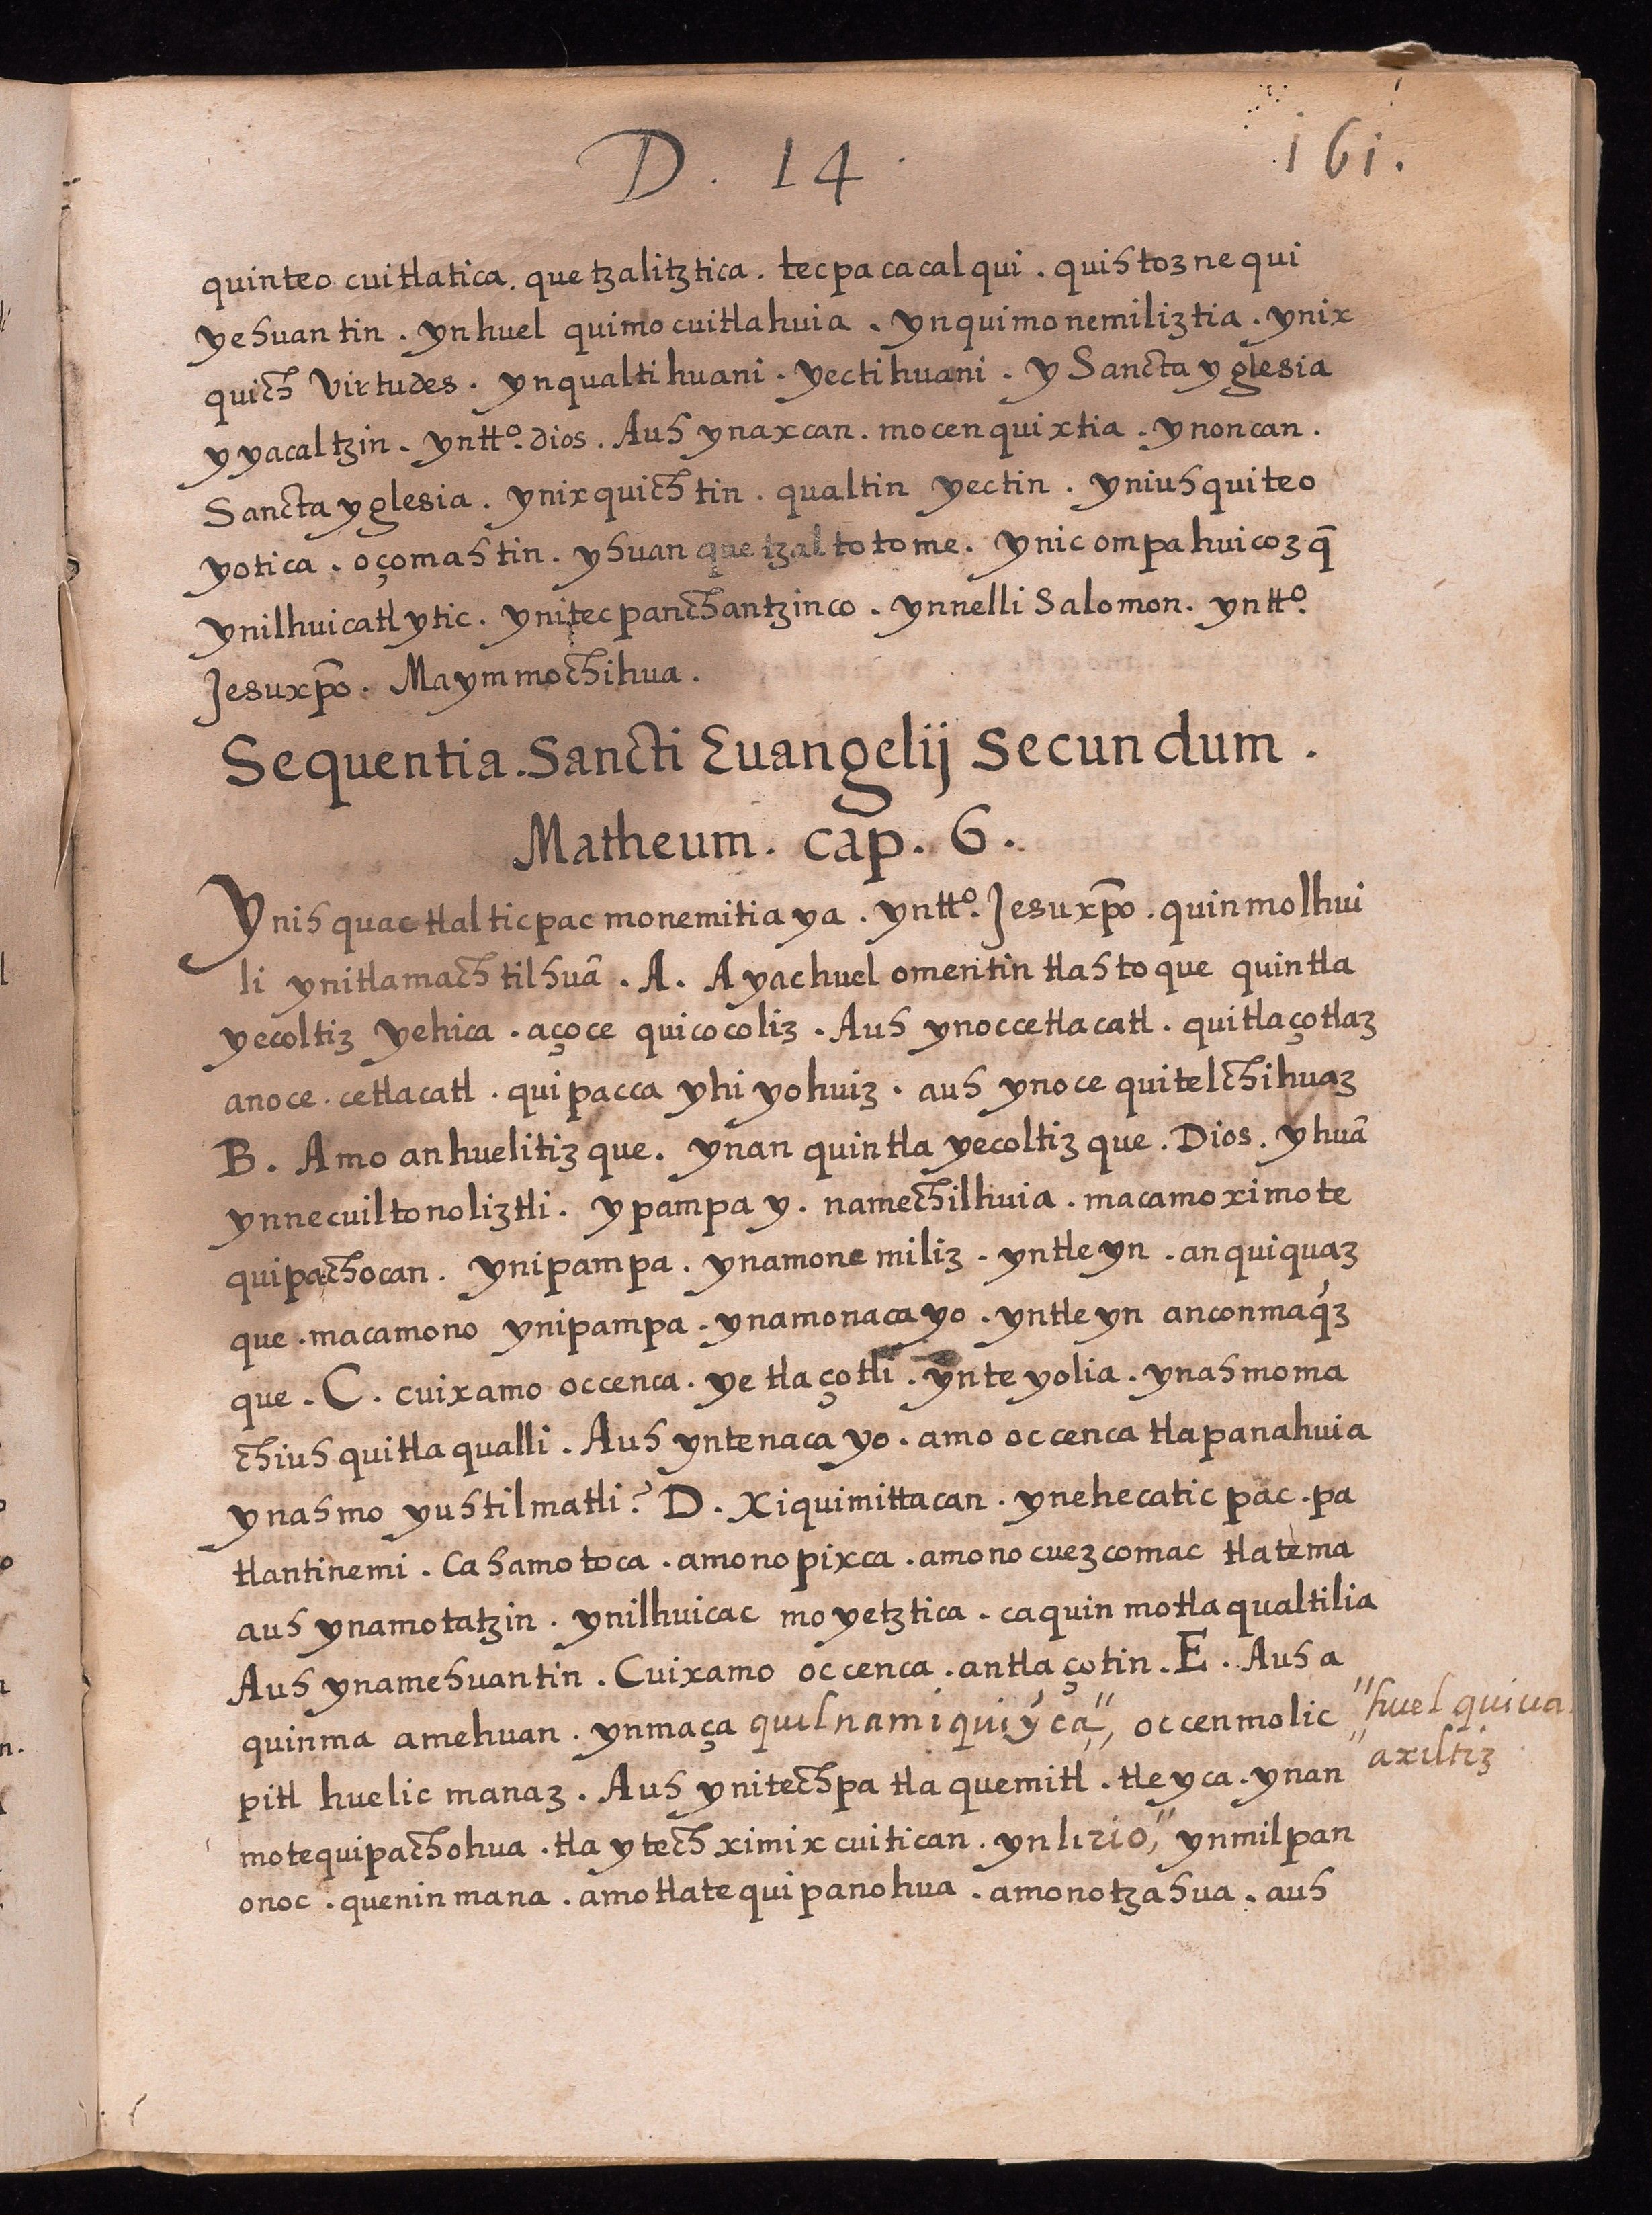 D. 14. 161.
quinteo cuitlatica. quetzalitztica. tecpacacalqui. quihtoznequi
yehuantin. ynhuel quimocuitlahuia. ynquimonemiliztia. ynix
quich virtudes. ynqualtihuani. yectihuani. y Sancta yglesia
yyacaltzin. yntto. dios. Auh ynaxcan. mocenquixtia. ynoncan.
Sancta yglesia. ynixquichtin. qualtin yectin. yniuhquiteo
yotica. oçomahtin. yhuan quetzaltotome. ynic ompahuicozq̃
ynilhuicatlytic. ynitecpanchantzinco. ynnelli Salomon. yntto.
Jesuxp̃o. Maymmochihua.
Sequentia. Sancti Euangelij Secundum.
Matheum. cap. 6.
Ynihquac tlalticpac monemitiaya. yntto. Jesuxp̃o. quinmolhui
li ynitlamachtilhuã. A. Ayachuel omentin tlahtoque quintla
yecoltiz yehica. açoce quicocoliz. Auh ynoccetlacatl. quitlaçotlaz
anoce. cetlacatl. quipacca yhiyohuiz. auh ynoce quitelchihuaz
B. Amo anhuelitizque. ynan quintlayecoltizque. Dios. yhuã
ynnecuiltonoliztli. ypampa y. namechilhuia. macamoximote
quipachocan. ynipampa. ynamonemiliz. yntleyn. anquiquaz
que. macamono ynipampa. ynamonacayo. yntleyn anconmaq́z
que. C. cuixamo occenca. yetlaçotli. ynteyolia. ynahmoma
chiuhquitlaqualli. Auh yntenacayo. amo occenca tlapanahuia
ynahmo yuhtilmatli? D. Xiquimittacan. ynehecaticpac. pa
tlantinemi. Cahamotoca. amonopixca. amonocuezcomac tlatema
auh ynamotatzin. ynilhuicac moyetztica. caquinmotlaqualtilia
Auh ynamehuantin. Cuixamo occenca. antlaçotin. E. Auh a
quinma amehuan. ynmaça quilnamiquiýca" occenmolic "huel quiua
pitl huelic manaz. Auh ynitechpa tlaquemitl. tleyca. ynan "axiltiz
motequipachohua. tla ytech ximixcuitican. ynlirio," ynmilpan
onoc. queninmana. amotlatequipanohua. amonotzahua. auh